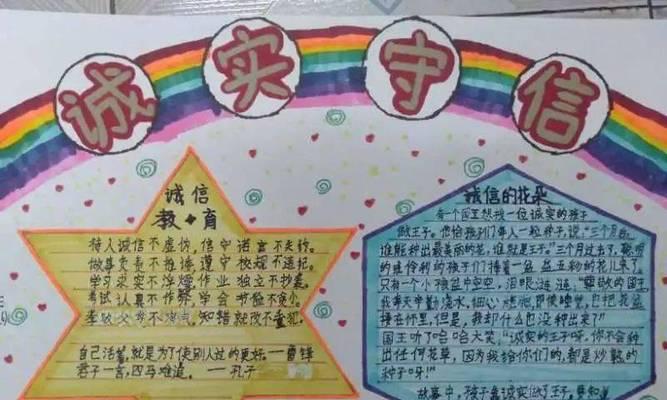 诚实守信
诚信
教育
待人诚信不虚伪,信守诺言不失约。
做事负责不推诿,遵守校规不违纪。
学习求实不浮燥,作业独立不抄袭。
考试认真不作弊,学会节俭不贪小。
孝敬父母不顶克,知错就改不重犯。
自己活着,就是为了使别人过的更好。——雷锋
君子一言,四马难追。——孔子
诚信的花朵
有一个国王想找一位诚实的孩子
做王子。他给孩子们每人一粒种子,说:“三个月后,
谁能种出最美丽的花,谁就是王子。”三个月过去了,聪明
的孩子们捧着一盆盆五粉的花儿来了。
只有一个小孩盆中空空,泪眼涟涟。
我每天辛勤浇水,细心,即使睡觉,也把花盆
搂在怀里,但是,我却什么也没种出来?”
国王听了哈哈大笑,“诚实的王子呀,你不会种
出任何花草,因为我给你们的,都是炒熟的
种子呀!”
故事中,孩子靠诚实做了王子。要知道